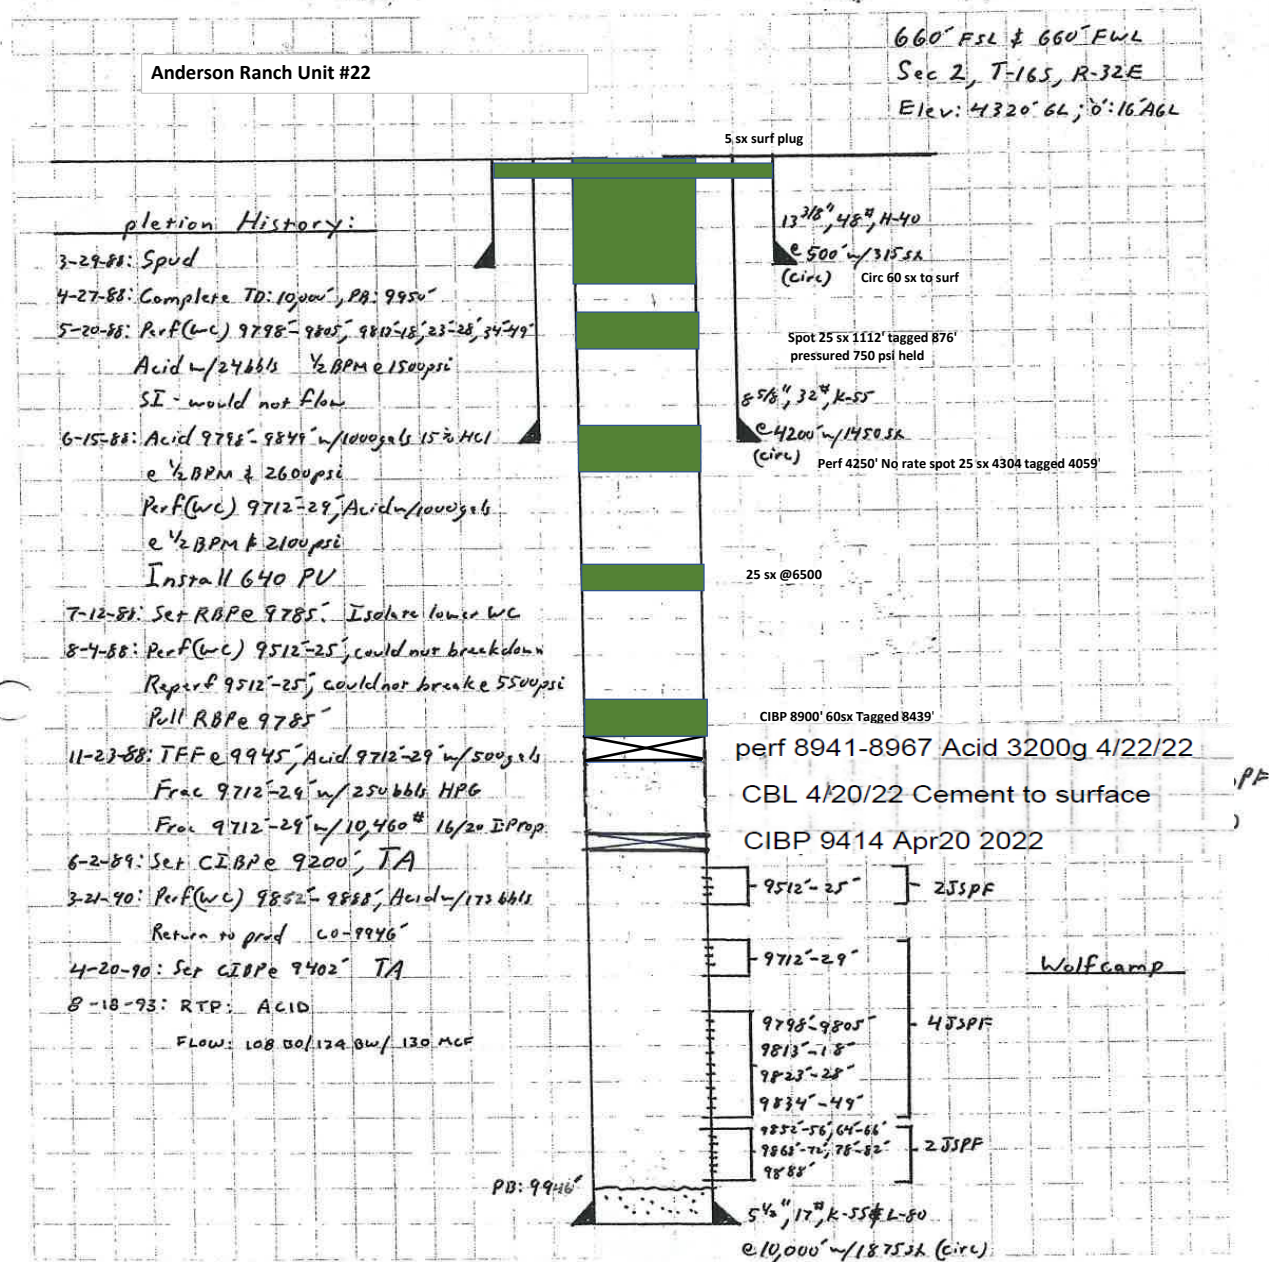 660' FSL & 660' FWL
Sec 2, T-16S, R-32E
Elev: 4320' GL; 0':16' AGL
Anderson Ranch Unit #22
5 sx surf plug
pletion History:
3-29-88: Spud
4-27-88: Complete TD: 10,000', PB: 9950'
5-20-88: Perf(WC) 9798'-9805', 9813'-18', 23'-28', 34'-49'
Acid w/24 bbls ½ BPM @ 1500psi
SI - would not flow
6-15-88: Acid 9798'-9849' w/1000gals 15% HCl
@ ½ BPM & 2600psi
Perf(WC) 9712'-29', Acid w/1000gals
@ ½ BPM & 2100psi
Install 640 PU
7-12-88: Set RBP@ 9785'. Isolate lower WC
8-4-88: Perf(WC) 9512'-25', could not breakdown
Reperf 9512'-25', could not break @ 5500psi
Pull RBP@ 9785'
11-23-88: TFF@ 9945', Acid 9712'-29' w/500gals
Frac 9712'-29' w/250bbls HPG
Frac 9712'-29' w/10,460# 16/20 I.Prop.
6-2-89: Set CIBP@ 9200', TA
3-21-90: Perf(WC) 9852'-9888', Acid w/173 bbls
Return to prod CO-9946'
4-20-90: Set CIBP@ 9402' TA
8-18-93: RTP: ACID
FLOW: 108 BO/124 BW/ 130 MCF
13 3/8", 48#, H-40
@ 500' w/315sx
(circ) Circ 60 sx to surf
Spot 25 sx 1112' tagged 876'
pressured 750 psi held
8 5/8", 32#, K-55
@ 4200' w/1450sx
(circ) Perf 4250' No rate spot 25 sx 4304 tagged 4059'
25 sx @6500
CIBP 8900' 60sx Tagged 8439'
perf 8941-8967 Acid 3200g 4/22/22
PF
CBL 4/20/22 Cement to surface
CIBP 9414 Apr20 2022
9512'-25' 2JSPF
9712'-29'
Wolfcamp
9798'-9805' 4JSPF
9813'-18'
9823'-28'
9834'-49'
9852'-56', 64'-66'
9868'-72', 78'-82' 2JSPF
9888'
PB: 9946'
5 1/2", 17#, K-55 & L-80
@ 10,000' w/1875sx (circ)